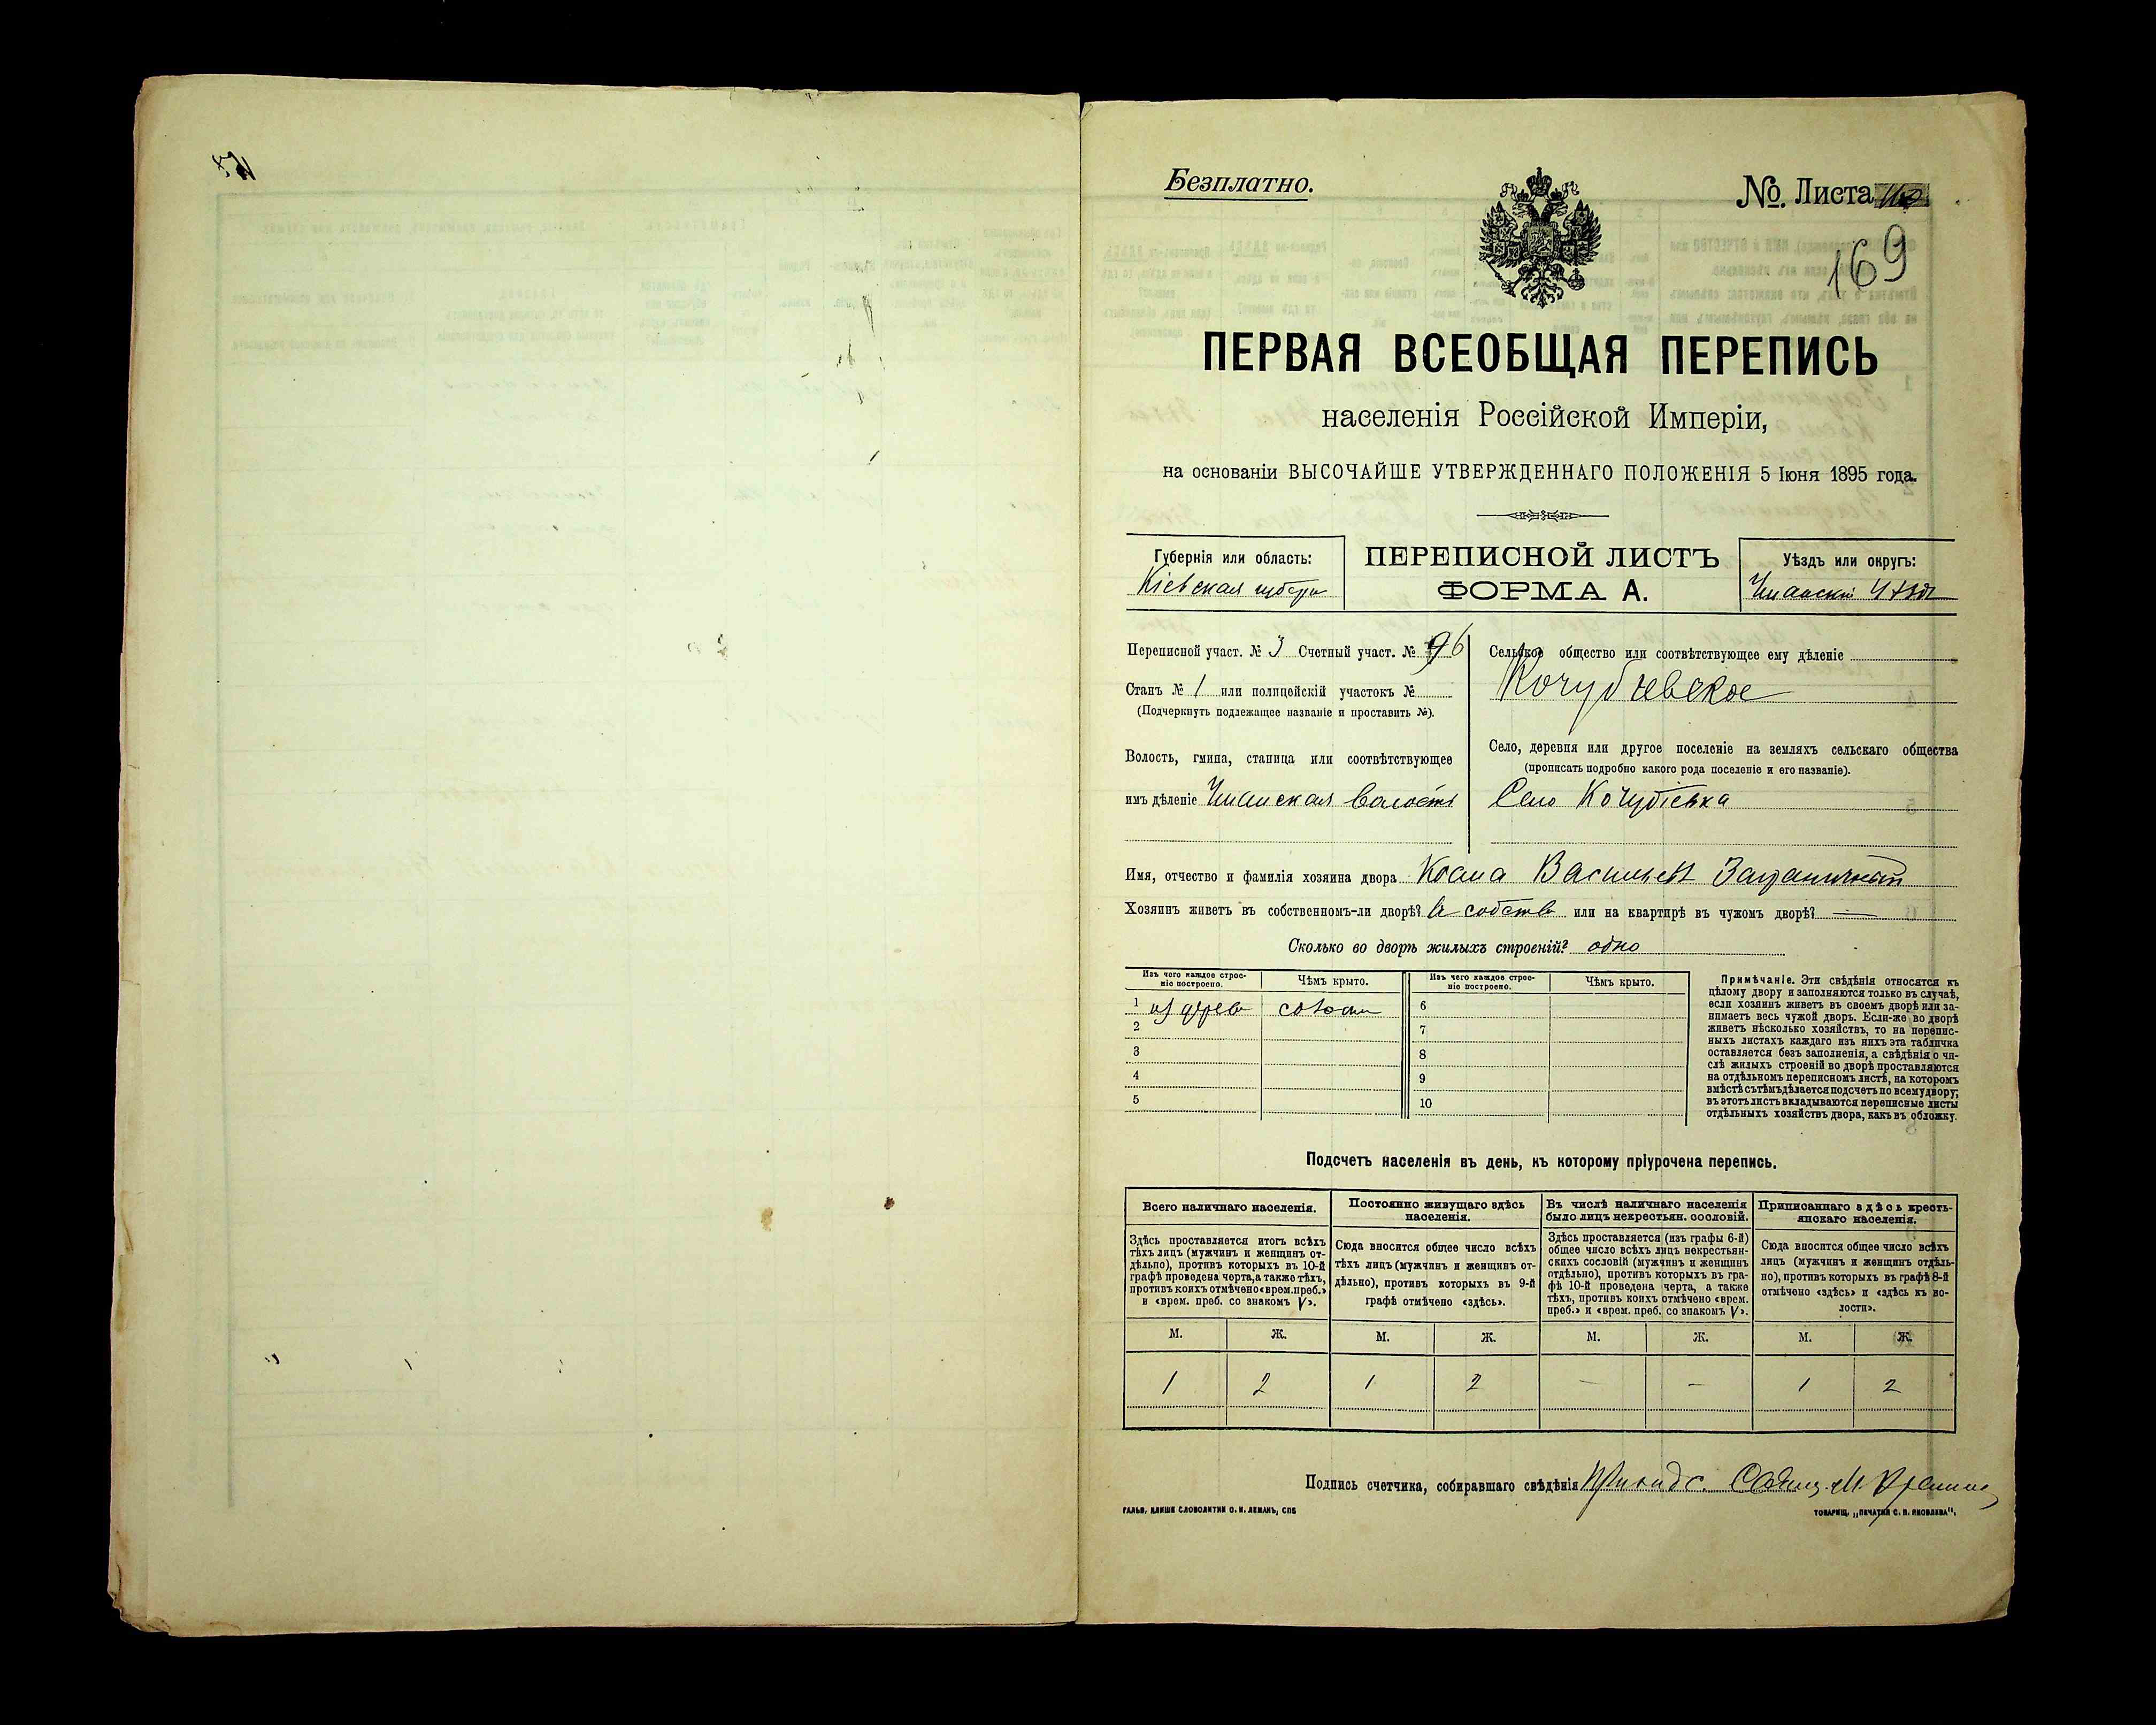 Безплатно.
№. Листа
169
ПЕРВАЯ ВСЕОБЩАЯ ПЕРЕПИСЬ
населенія Россійской Имперіи,
на основаніи ВЫСОЧАЙШЕ УТВЕРЖДЕННАГО ПОЛОЖЕНІЯ 5 Іюня 1895 года.
Губернія или область:
Кіевская
ПЕРЕПИСНОЙ ЛИСТЪ
ФОРМА А.
Уѣздъ или округъ:
Уманскій уѣздъ
Переписной участ. № 3 Счетный участ. № 96
Станъ № 1 или полицейскій участокъ №
(Подчеркнуть подлежащее названіе и проставить №).
Волость, гмина, станица или соотвѣтствующее
имъ дѣленіе Уманская волость
Сельское общество или соотвѣтствующее ему дѣленіе
Кочубіевское
Село, деревня или другое поселеніе на земляхъ сельскаго общества
(прописать подробно какого рода поселеніе и его названіе).
Село Кочубіевка
Имя, отчество и фамилія хозяина двора Косма Васильевъ
Хозяинъ живетъ въ собственномъ-ли дворѣ? въ собств или на квартирѣ въ чужомъ дворѣ? —
Сколько во дворѣ жилыхъ строеній? одно
Изъ чего каждое строе-
ніе построено.
Чѣмъ крыто.
Изъ чего каждое строе-
ніе построено.
Чѣмъ крыто.
1 из дерев
6
2
7
3
8
4
9
5
10
Примѣчаніе. Эти свѣдѣнія относятся къ
цѣлому двору и заполняются только въ случаѣ,
если хозяинъ живетъ въ своемъ дворѣ или за-
нимаетъ весь чужой дворъ. Если-же во дворѣ
живетъ нѣсколько хозяйствъ, то на перепис-
ныхъ листахъ каждаго изъ нихъ эта табличка
оставляется безъ заполненія, а свѣдѣнія о чи-
слѣ жилыхъ строеній во дворѣ проставляются
на отдѣльномъ переписномъ листѣ, на которомъ
вмѣстѣ съ тѣмъ дѣлается подсчетъ по всему двору;
въ этотъ листъ вкладываются переписные листы
отдѣльныхъ хозяйствъ двора, какъ въ обложку.
Подсчетъ населенія въ день, къ которому пріурочена перепись.
Всего наличнаго населенія.
Здѣсь проставляется итогъ всѣхъ
тѣхъ лицъ (мужчинъ и женщинъ от-
дѣльно), противъ которыхъ въ 10-й
графѣ проведена черта, а также тѣхъ,
противъ коихъ отмѣчено «врем. преб.»
и «врем. преб. со знакомъ V».
Постоянно живущаго здѣсь
населенія.
Сюда вносится общее число всѣхъ
тѣхъ лицъ (мужчинъ и женщинъ от-
дѣльно), противъ которыхъ въ 9-й
графѣ отмѣчено «здѣсь».
Въ числѣ наличнаго населенія
было лицъ некрестьян. сословій.
Здѣсь проставляется (изъ графы 6-й)
общее число всѣхъ лицъ некрестьян-
скихъ сословій (мужчинъ и женщинъ
отдѣльно), противъ которыхъ въ гра-
фѣ 10-й проведена черта, а также
тѣхъ, противъ коихъ отмѣчено «врем.
преб.» и «врем. преб. со знакомъ V».
Приписаннаго здѣсь кресть-
янскаго населенія.
Сюда вносится общее число всѣхъ
лицъ (мужчинъ и женщинъ отдѣль-
но), противъ которыхъ въ графѣ 8-й
отмѣчено «здѣсь» и «здѣсь къ во-
лости».
М. Ж. М. Ж. М. Ж. М. Ж.
1 2 1 2 — — 1 2
Подпись счетчика, собиравшаго свѣдѣнія
ГАЛЬВ. КЛИШЕ СЛОВОЛИТНИ О. И. ЛЕМАНЪ, СПБ
ТОВАРИЩ. „ПЕЧАТНЯ С. П. ЯКОВЛЕВА",